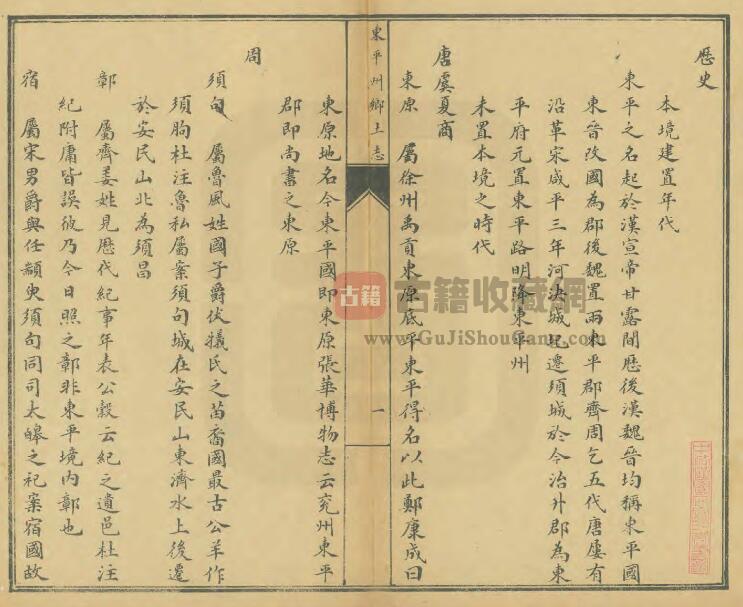 歷史
本境建置年代
東平之名起於漢宣帝甘露間歷後漢魏晉均稱東平國
東晉改國為郡後魏置兩東平郡齊周乞五代唐屢有
沿革宋咸平三年河決城圮遷須城於今治升郡為東
平府元置東平路明降東平州
未置本境之時代
唐虞夏商
東原 屬徐州禹貢東原底平東平得名以此鄭康成曰
東平州鄉土志
一
東原地名今東平國即東原張華博物志云兖州東平
郡即尚書之東原
周
須句 屬魯風姓國子爵伏犧氏之苗裔國最古公羊作
須朐杜注魯私屬案須句城在安民山東濟水上後遷
於安民山北為須昌
鄣 屬齊姜姓見歷代紀事年表公穀云紀之遺邑杜注
紀附庸皆誤彼乃今日照之鄣非東平境內鄣也
宿 屬宋男爵與任顓臾須句同司太皞之祀案宿國故
古籍
古籍收藏網
www.GuJiShouCang.com